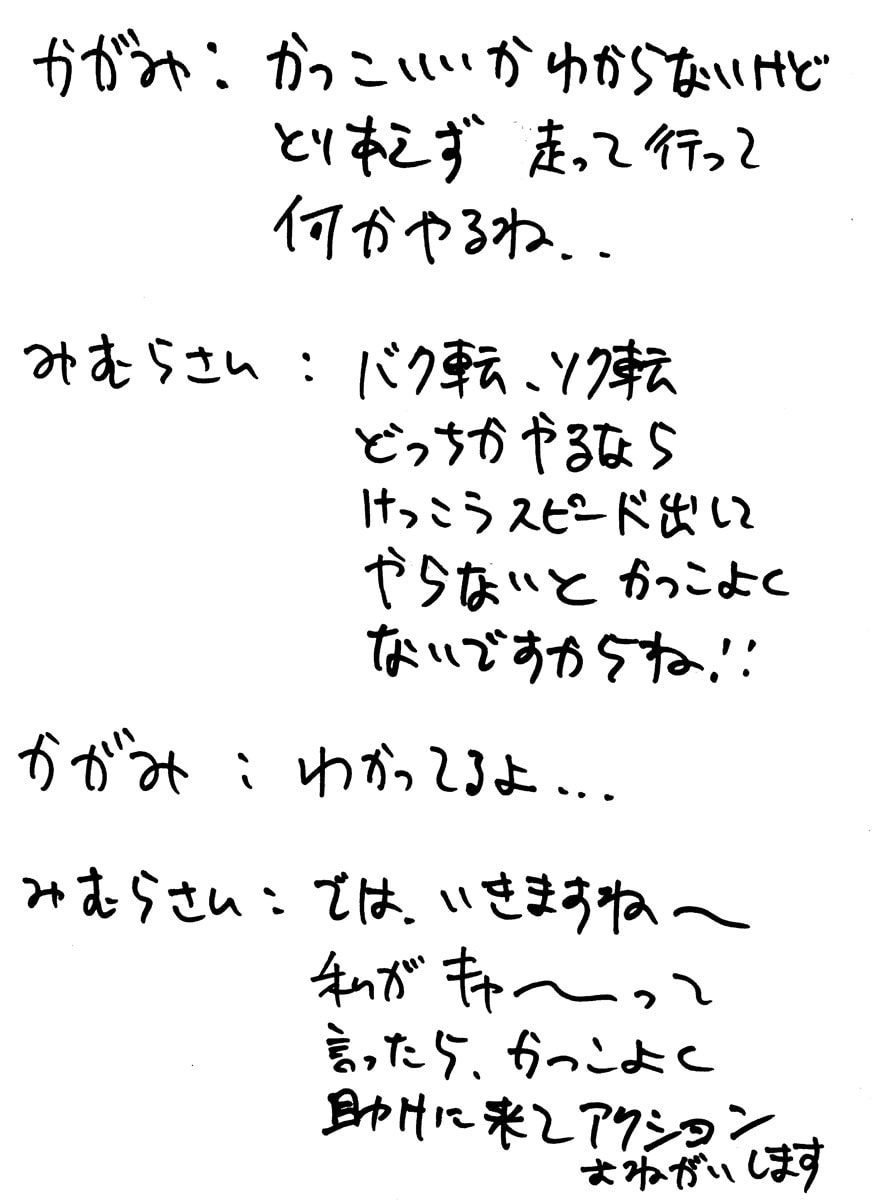 かがみ: かっこいいかわからないけど
とりあえず 走って行って
何かやるね..
みむらさん: バク転、ソク転
どっちかやるなら
けっこうスピード出して
やらないと かっこよく
ないですからね!!
かがみ: わかってるよ...
みむらさん: では、いきますね〜
私がキャ〜って
言ったら、かっこよく
助けに来てアクション
おねがいします